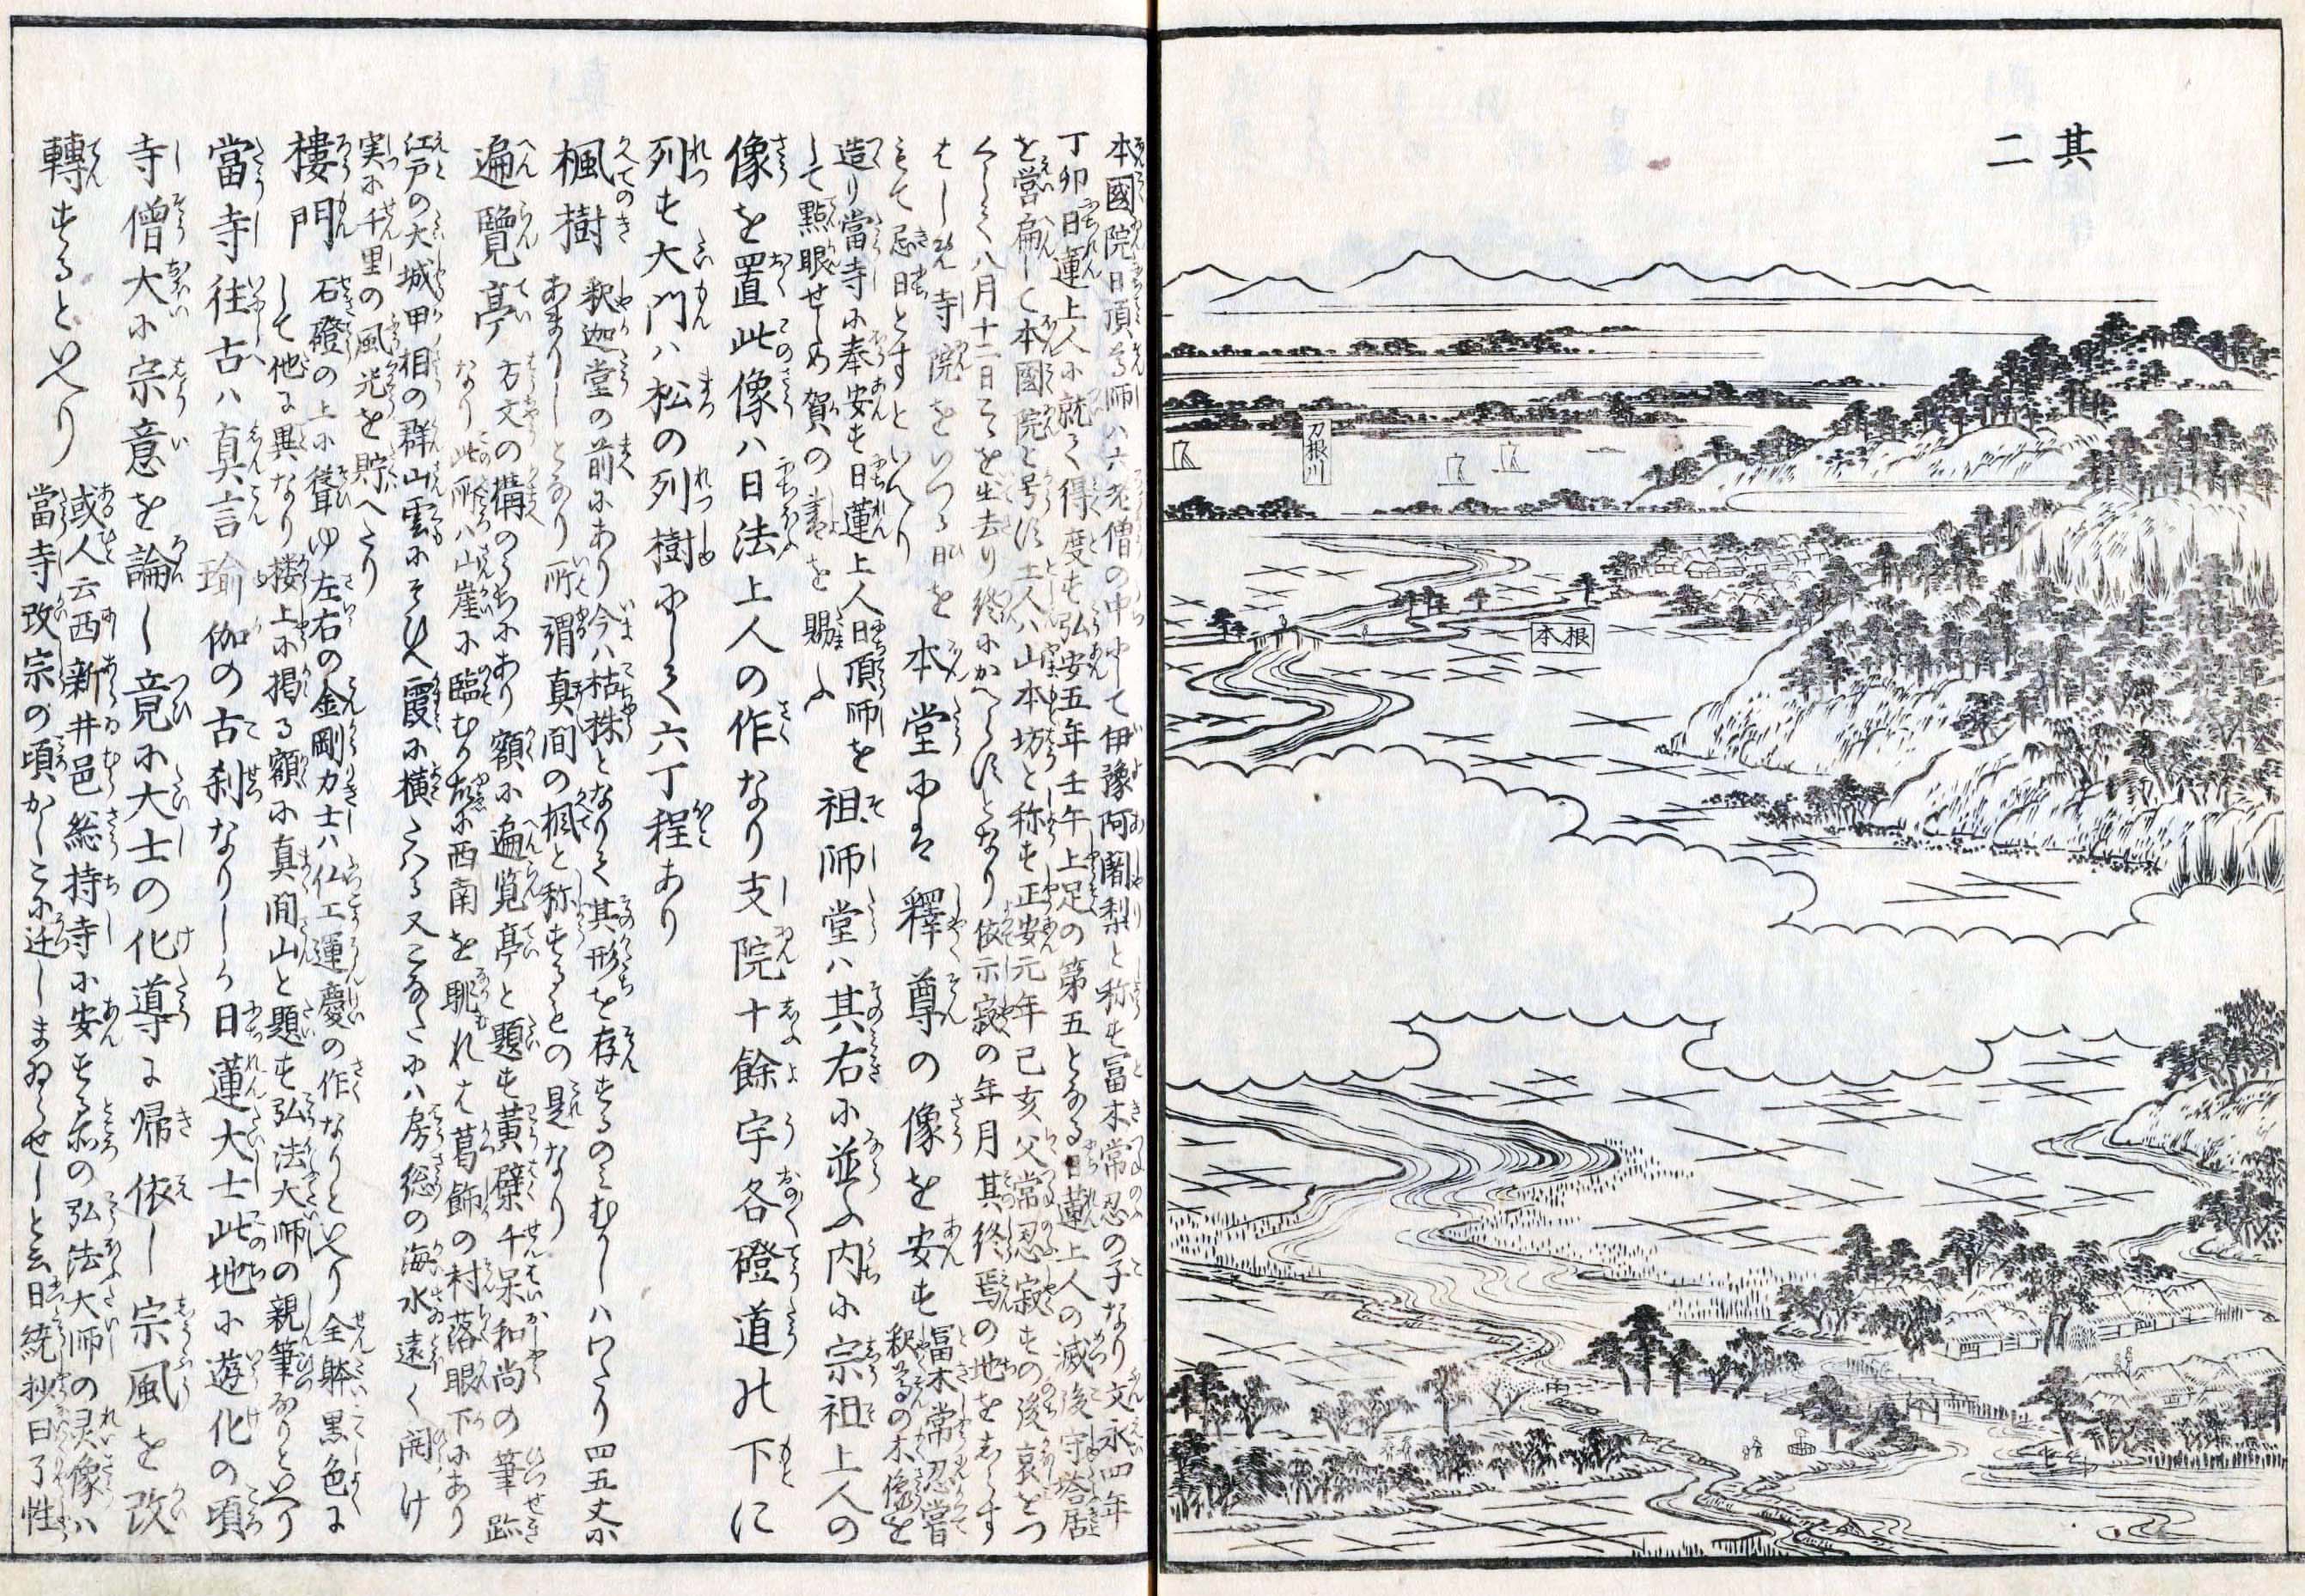 其二
刀根川
根本
本國院日頂尊師ハ六老僧の中にして伊豫阿闍梨と称す冨木常忍の子なり文永四年
丁卯日蓮上人に就て得度す弘安五年壬午上足の第五となる日蓮上人の滅後守塔居
を営扁して本國院と号す土人ハ山本坊と称す正安元年己亥父常忍寂すの後哀をつ
くして八月十二日こゝを出去り終にかへらすとなり依示寂の年月其終焉の地をしらす
たゝし寺院をいつる日を
もて忌日とすといへり
本堂にハ釋尊の像を安す
冨木常忍嘗
釈尊の木像を
造り當寺に奉安す日蓮上人日頂師を
して點眼せしめ賀の書を賜ふ
祖師堂ハ其右に並ふ内に宗祖上人の
像を置此像ハ日法上人の作なり支院十餘宇各磴道の下に
列す大門ハ松の列樹にして六丁程あり
楓樹
釈迦堂の前にあり今ハ枯株となりて其形を存するのみむかしハワたり四五丈に
あまりしとなり所謂真間の楓と称するもの是なり
遍覽亭
方丈の構のうちにあり額に遍覧亭と題す黄檗千呆和尚の筆跡
なり此所ハ山崖に臨むり故に西南を眺れは葛飾の村落眼下にあり
江戸の大城甲相の群山雲にそひへ霞に横たハる又こなたにハ房総の海水遠く開け
実に千里の風光を貯へたり
樓門
石磴の上に聳ゆ左右の金剛力士ハ仏工運慶の作なりといへり全躰黒色に
して他に異なり楼上に掲る額に真間山と題す弘法大師の親筆なりといへり
當寺往古ハ真言瑜伽の古刹なりしか日蓮大士此地に遊化の頃
寺僧大に宗意を論し竟に大士の化導に帰依し宗風を改
轉するといへり
或人云西新井邑総持寺に安する所の弘法大師の灵像ハ
當寺改宗の頃かしこに迁しまゐらせしと云日統抄曰了性